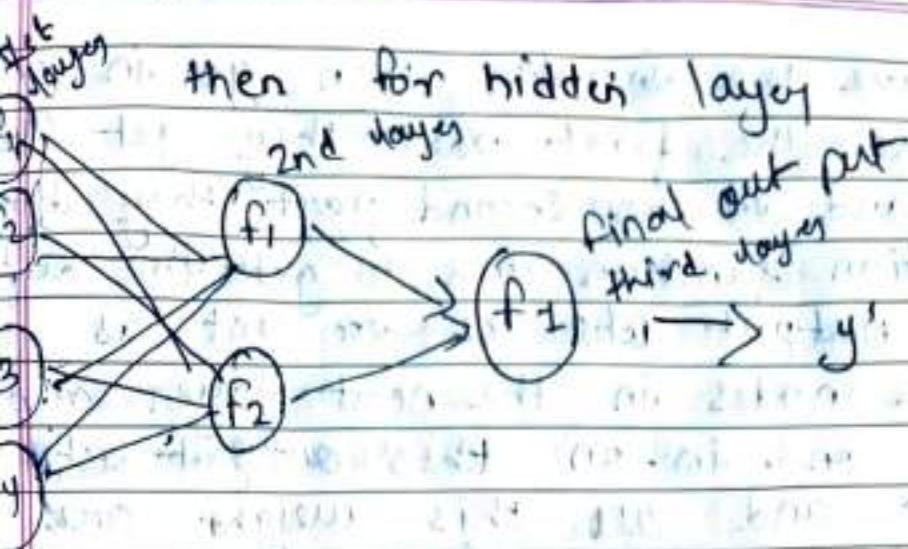 1st
layer
then . for hidden layer
2nd layer
1
2
3
4
f1
f2
f1
final out put
third layer
y'